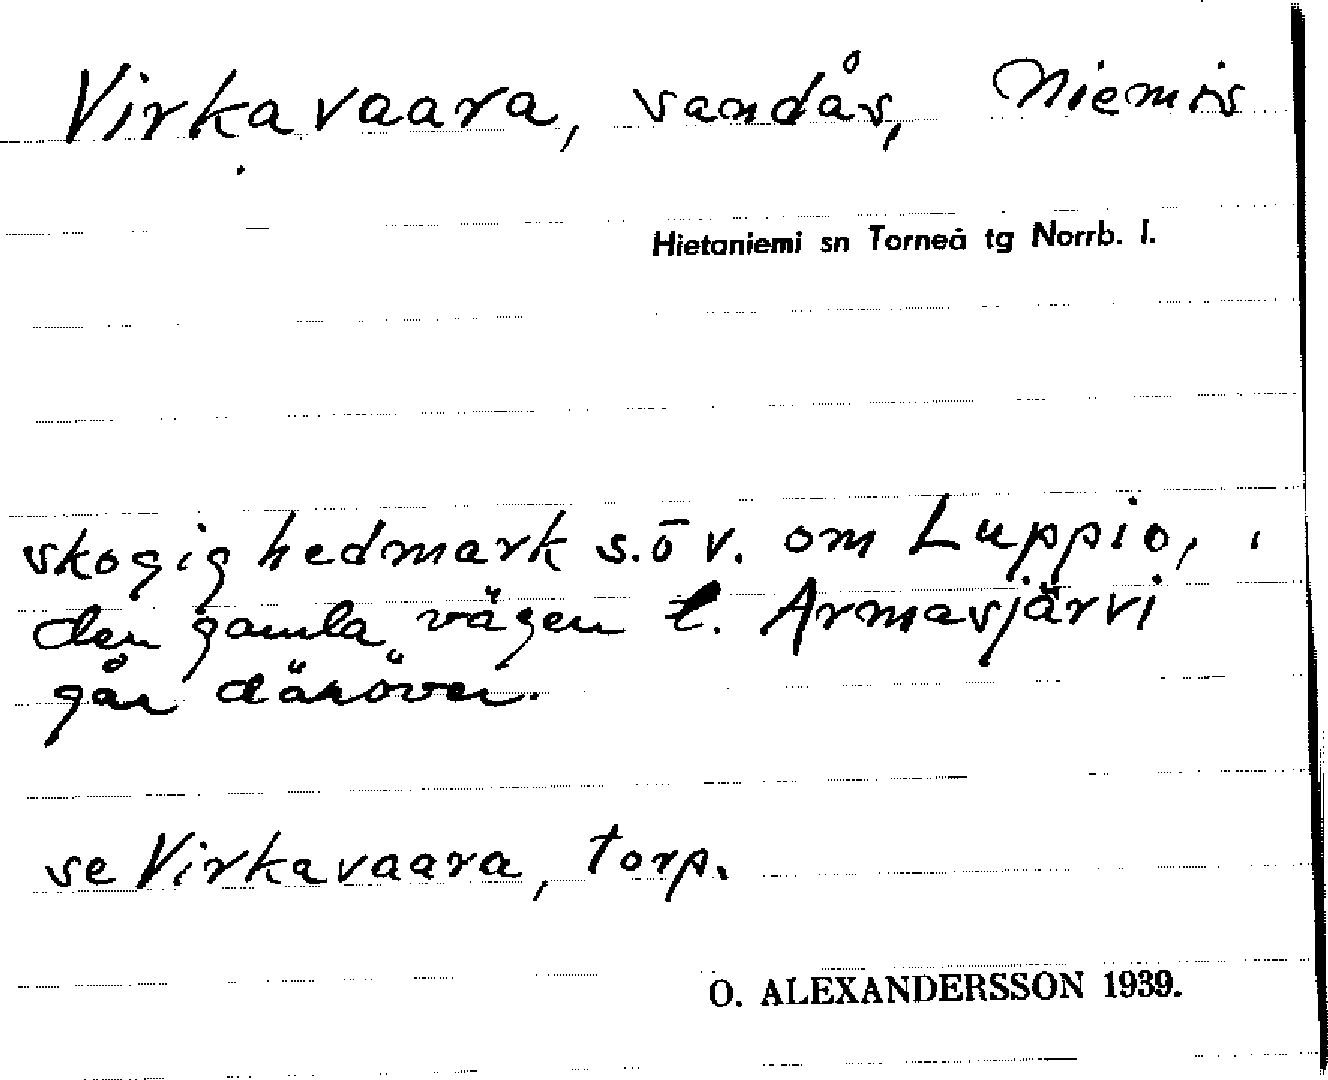 Virkavaara, sandås, Niemis
Hietaniemi sn Torneå tg Norrb. l.
skogig hedmark s.ö v. om Luppio,
den gamla vägen t. Armasjärvi
går däröver.
se Virkavaara, torp.
O. ALEXANDERSSON 1939.